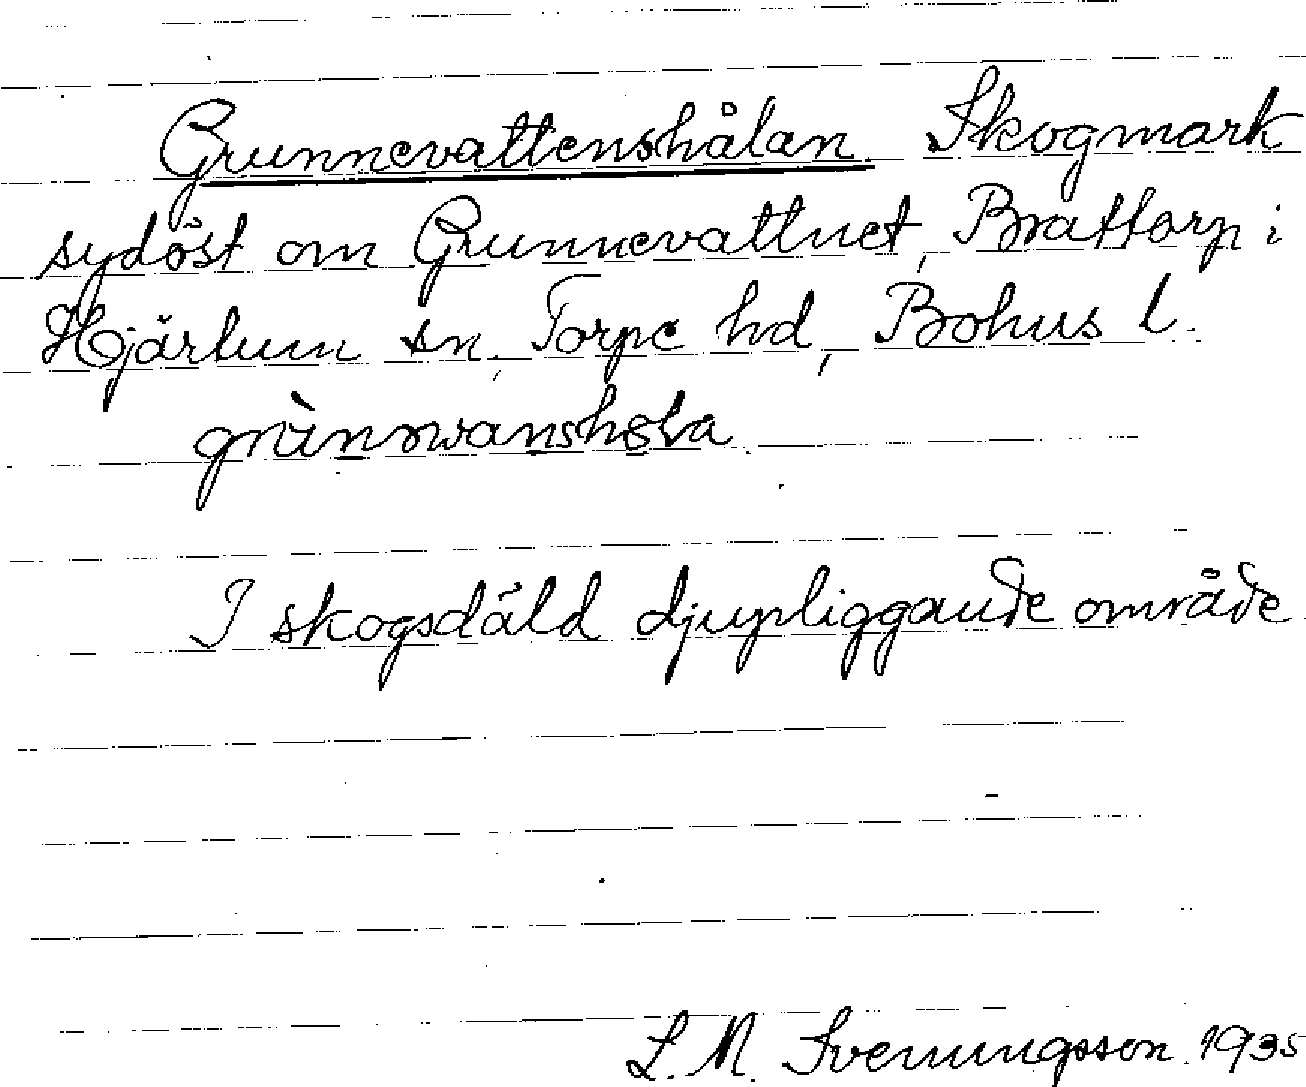 Grunnevattenshålan Skogmark
sydöst om Grunnevattnet, Brattorp i
Hjärtum sn, Torpe hd, Bohus l.
I skogsdäld djupliggande område
L. M. Svenungsson 1935